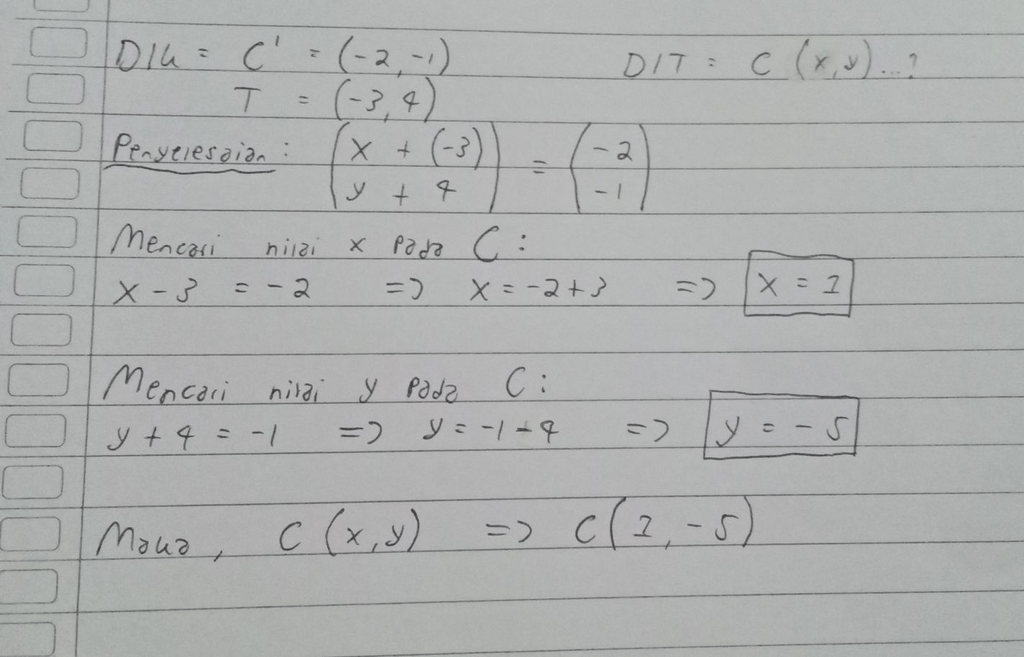 DIK = C' = (-2, -1) DIT = C (x, y)...?
T = (-3, 4)
Penyelesaian : (x + (-3)) = (-2)
(y + 4) (-1)
Mencari nilai x pada C :
x - 3 = -2 => x = -2 + 3 => x = 1
Mencari nilai y pada C :
y + 4 = -1 => y = -1 - 4 => y = -5
Maka, C (x, y) => C (1, -5)